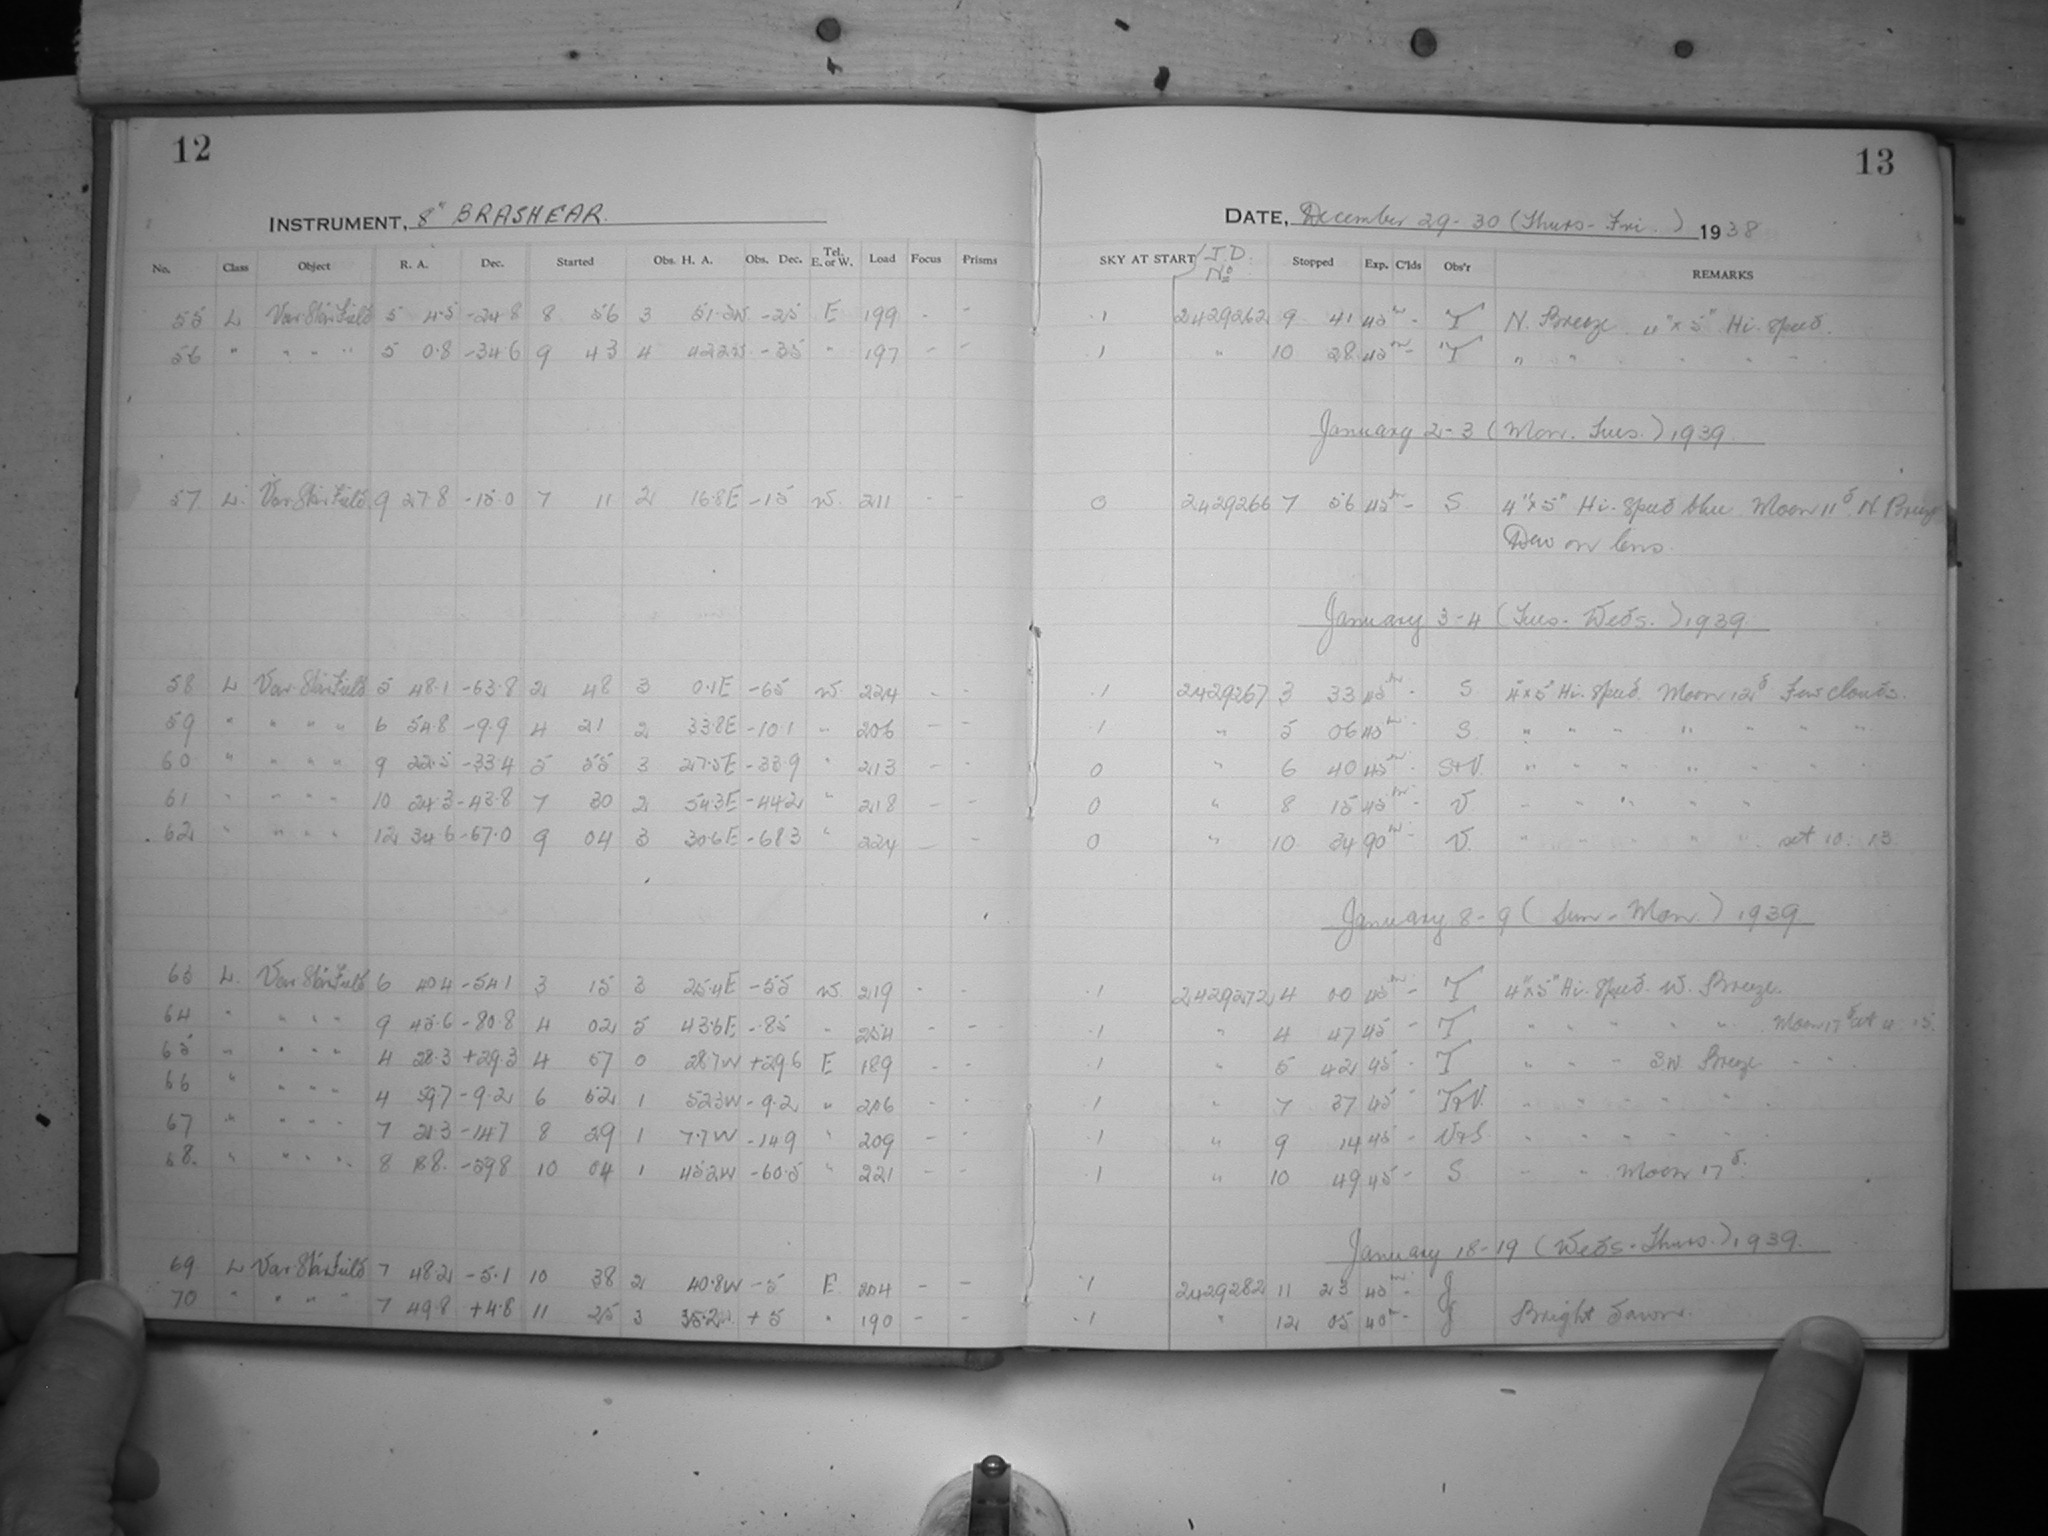 12
13
INSTRUMENT, 8" BRASHEAR.
DATE, December 29-30 (Thurs-Fri.) 1938
No. Class Object R. A. Dec. Started Obs. H. A. Obs. Dec. Tel. E. or W. Load Focus Prisms SKY AT START J.D. No Stopped Exp. C'lds Obs'r REMARKS
55 L Var. Star Field 5 4.5 -24.8 8 56 3 51.2W -25 E 199 - - .1 2429262 9 41 45m - T N. Breeze 4"x5" Hi. speed.
56 " " " " 5 0.8 -34.6 9 43 4 42.2W -35 " 197 - - .1 " 10 28 45m - T " "
January 2-3 (Mon. Tues.) 1939
57 L. Var. Star Field 9 27.8 -15.0 7 11 2 16.8E -15 W. 211 - - 0 2429266 7 56 45m - S 4"x5" Hi. Speed blue Moon 11d N. Breeze
Dew on lens.
January 3-4 (Tues. Weds.) 1939
58 L Var. Star Field 5 48.1 -63.8 2 48 3 0.1E -65 W. 224 - - .1 2429267 3 33 45m - S 4"x5" Hi. Speed. Moon 12d Few clouds.
59 " " " " 6 54.8 -9.9 4 21 2 33.8E -10.1 " 206 - - .1 " 5 06 45m - S " " " " " " "
60 " " " " 9 22.5 -33.4 5 55 3 27.5E -33.9 " 213 - - 0 " 6 40 45m - S+V. " " " " " " "
61 " " " " 10 24.3 -43.8 7 30 2 54.3E -44.2 " 218 - - 0 " 8 15 45m - V " " " " "
62 " " " " 12 34.6 -67.0 9 04 3 30.6E -68.3 " 224 - - 0 " 10 34 90m - V. " " " " " set 10: 13.
January 8-9 (Sun-Mon.) 1939
63 L. Var. Star Field 6 40.4 -54.1 3 15 3 25.4E -55 W. 219 - - .1 2429272 4 00 45m - T 4"x5" Hi. Speed. W. Breeze.
64 " " " " 9 45.6 -80.8 4 02 5 43.6E -85 " 254 .1 " 4 47 45 - T " " " " " Moon 17d
65 " " " " 4 28.3 +29.3 4 57 0 28.7W +29.6 E 189 - - .1 " 5 42 45 - T " " " SW Breeze - -
66 " " " " 4 59.7 -9.2 6 52 1 52.3W -9.2 " 206 - - .1 " 7 37 45 - T+V. " " " " " "
67 " " " " 7 21.3 -14.7 8 29 1 7.7W -14.9 " 209 - - .1 " 9 14 45 - V+S " " " " " "
68. " " " " 8 -59.8 10 04 1 45.2W -60.5 " 221 - - .1 " 10 49 45 - S - " Moon 17d.
January 18-19 (Weds. Thurs.) 1939.
69 L Var. Star Field 7 48.2 -5.1 10 38 2 40.8W -5 E 204 - - .1 2429282 11 23 45m - J
70 " " " " 7 49.8 +4.8 11 25 3 35.2W +5 " 190 - - .1 " 12 05 40m - J Bright dawn.